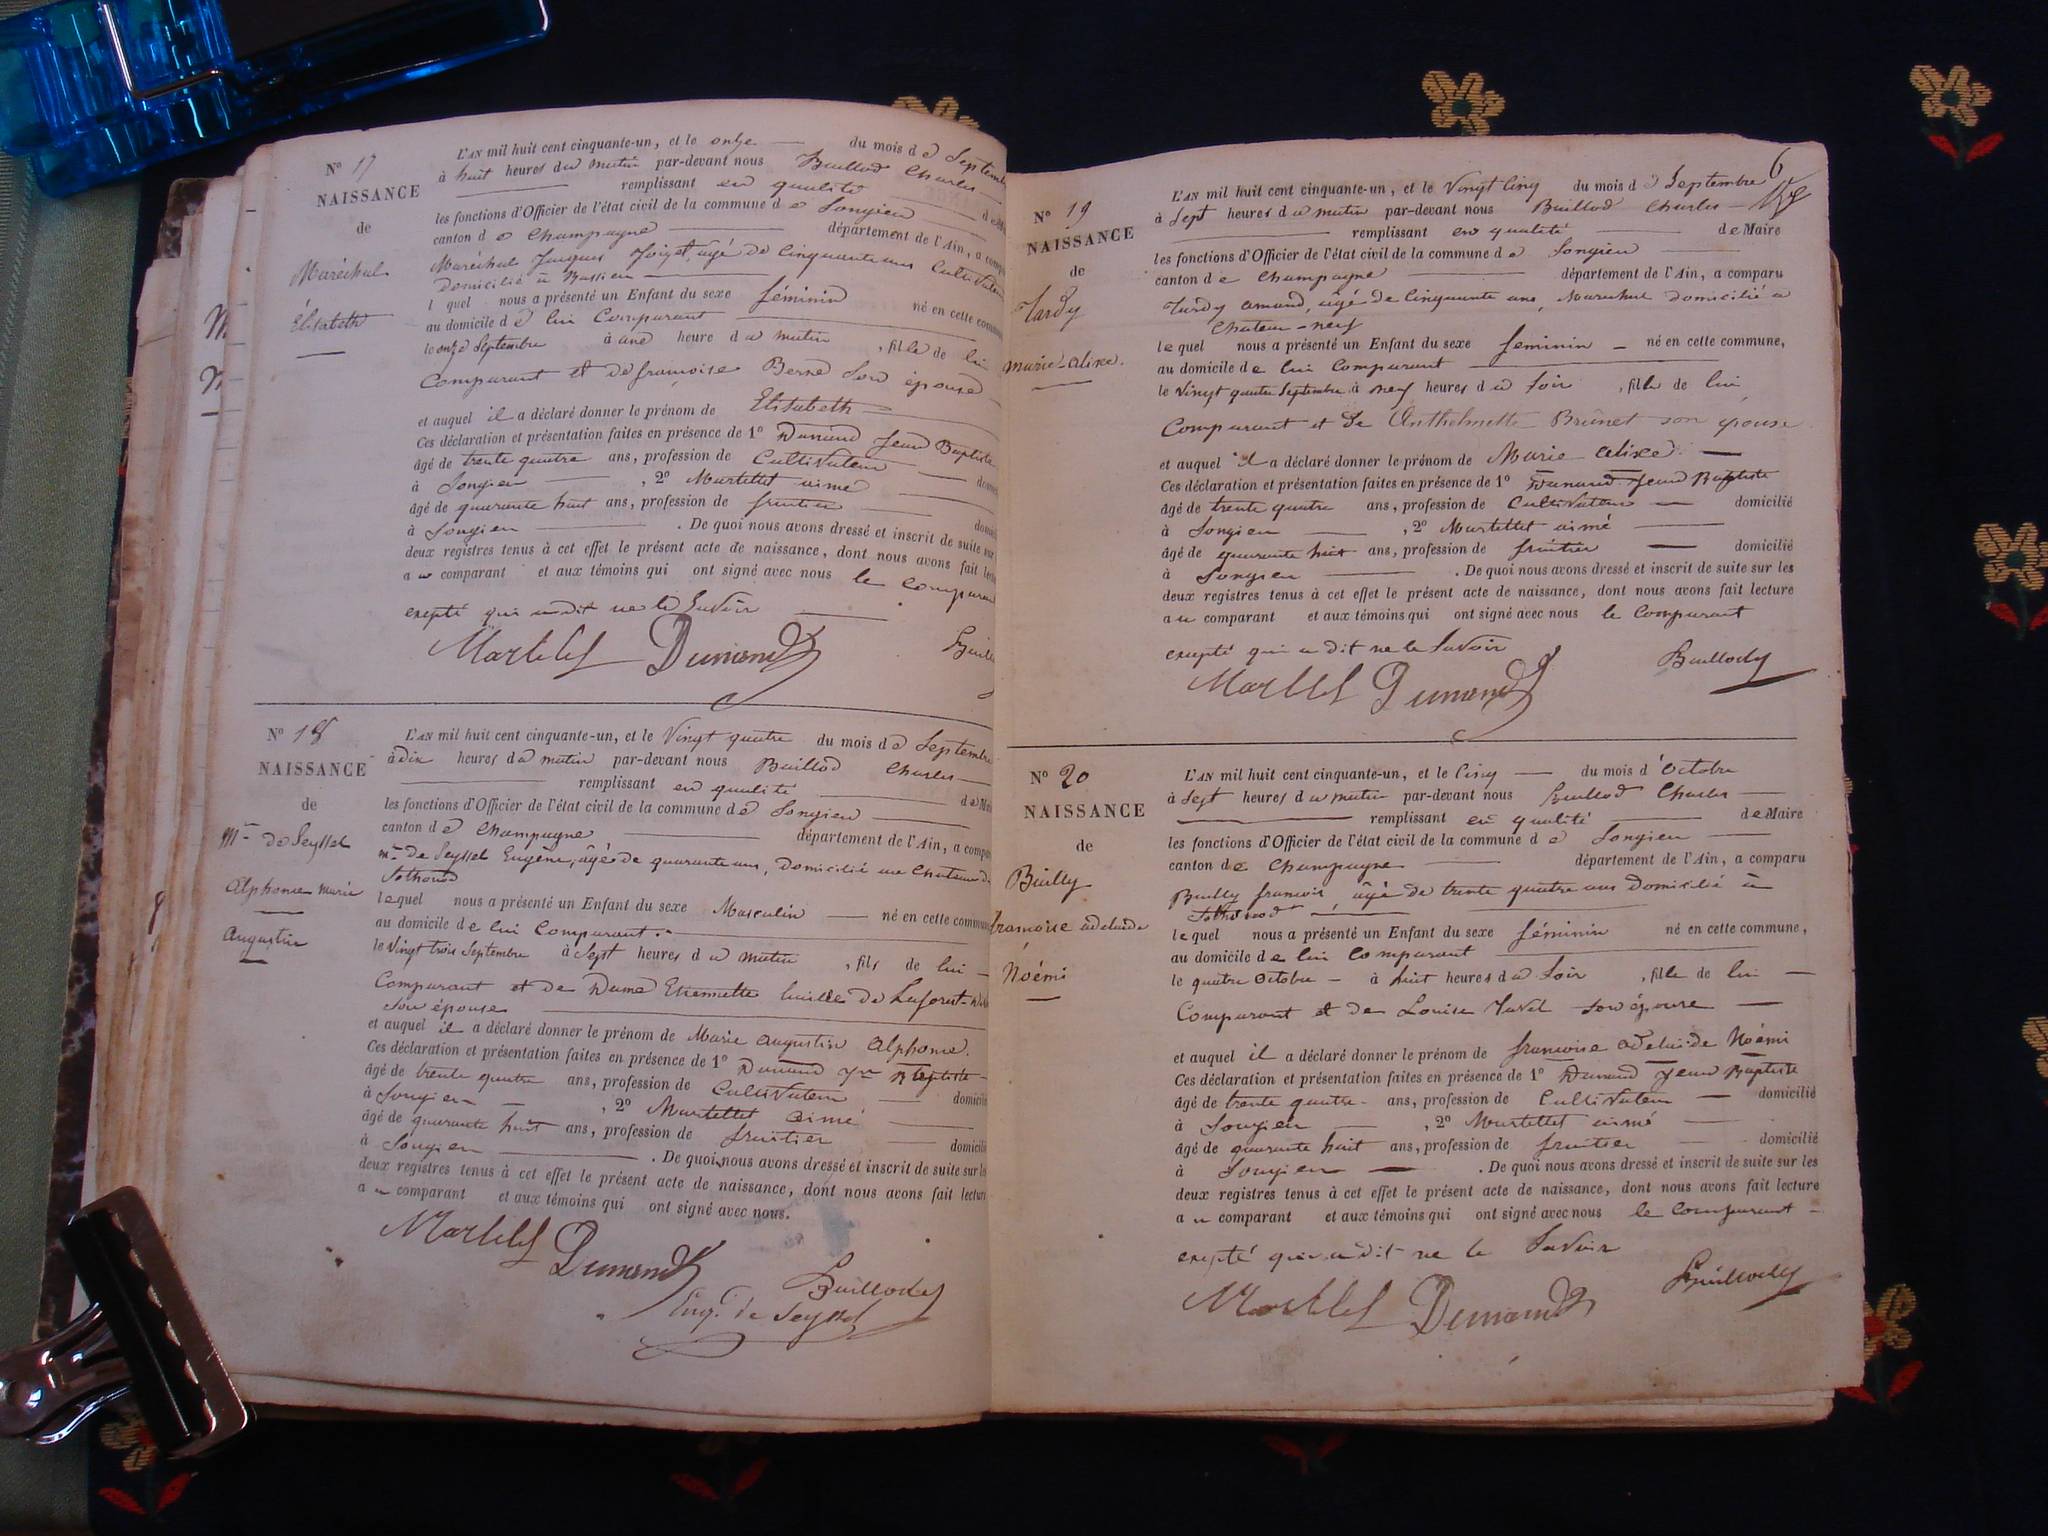 N° 17
NAISSANCE
de
Maréchal
Élisabeth
L'AN mil huit cent cinquante-un, et le onze du mois de Septembre
à huit heures du matin par-devant nous Buillod Charles
remplissant en qualité de
les fonctions d'Officier de l'état civil de la commune de Songieu
canton de Champagne département de l'Ain, a comparu
Maréchal Jacques âgé de Cinquante ans Cultivateur
Domicilié à Bassieu
lequel nous a présenté un Enfant du sexe féminin né en cette commune
au domicile de lui Comparant
le onze Septembre à une heure du matin, fille de lui
Comparant et de françoise Berne Son épouse
et auquel il a déclaré donner le prénom de Elisabeth
Ces déclaration et présentation faites en présence de 1° Dunand Jean Baptiste
âgé de trente quatre ans, profession de Cultivateur
à Songieu, 2° Martellet aimé
âgé de quarante huit ans, profession de fruitier
à Songieu. De quoi nous avons dressé et inscrit de suite sur
deux registres tenus à cet effet le présent acte de naissance, dont nous avons fait lecture
au comparant et aux témoins qui ont signé avec nous le comparant
exepté qui a dit ne le Savoir
Martelet Dunand
N° 18
NAISSANCE
de
Mr de Seyssel
Alphonse Marie
Augustin
L'AN mil huit cent cinquante-un, et le Vingt quatre du mois de Septembre
à dix heures du matin par-devant nous Buillod Charles
remplissant en qualité de Maire
les fonctions d'Officier de l'état civil de la commune de Songieu
canton de Champagne département de l'Ain, a comparu
Mr de Seyssel Eugène, âgé de quarante ans, Domicilié au Chateau de
Sothonod
lequel nous a présenté un Enfant du sexe Masculin né en cette commune
au domicile de lui Comparant
le Vingt trois Septembre à Sept heures du matin, fils de lui
Comparant et de Dame Etiennette Lucille de Laforest
Son épouse
et auquel il a déclaré donner le prénom de Marie Augustin Alphonse.
Ces déclaration et présentation faites en présence de 1° Dunand Jn Baptiste
âgé de trente quatre ans, profession de Cultivateur domicilié
à Songieu, 2° Martellet aimé
âgé de quarante huit ans, profession de fruitier domicilié
à Songieu. De quoi nous avons dressé et inscrit de suite sur les
deux registres tenus à cet effet le présent acte de naissance, dont nous avons fait lecture
au comparant et aux témoins qui ont signé avec nous.
Martelet Dunand
Buillod
Eug. de Seyssel
6
N° 19
NAISSANCE
de
Tardy
marie-alixe.
L'AN mil huit cent cinquante-un, et le Vingt Cinq du mois de Septembre
à Sept heures du matin par-devant nous Buillod Charles
remplissant en qualité de Maire
les fonctions d'Officier de l'état civil de la commune de Songieu
canton de Champagne département de l'Ain, a comparu
Tardy amand, âgé de Cinquante ans, Maréchal Domicilié a
Chateau-neuf
lequel nous a présenté un Enfant du sexe feminin né en cette commune,
au domicile de lui Comparant
le Vingt quatre Septembre à neuf heures du Soir, fille de lui
Comparant et de Anthelmette Brunet son épouse
et auquel il a déclaré donner le prénom de Marie Alixe
Ces déclaration et présentation faites en présence de 1° Dunand Jean Baptiste
âgé de trente quatre ans, profession de Cultivateur domicilié
à Songieu, 2° Martellet aimé
âgé de quarante huit ans, profession de fruitier domicilié
à Songieu. De quoi nous avons dressé et inscrit de suite sur les
deux registres tenus à cet effet le présent acte de naissance, dont nous avons fait lecture
au comparant et aux témoins qui ont signé avec nous le Comparant
exepté qui a dit ne le Savoir
Martelet Dunand Buillod
N° 20
NAISSANCE
de
Builly
francoise adelaide
Noémi
L'AN mil huit cent cinquante-un, et le Cinq du mois d'Octobre
à Sept heures du matin par-devant nous Buillod Charles
remplissant en qualité de Maire
les fonctions d'Officier de l'état civil de la commune de Songieu
canton de Champagne département de l'Ain, a comparu
Builly francois, âgé de trente quatre ans Domicilié à
Sothonod
lequel nous a présenté un Enfant du sexe féminin né en cette commune,
au domicile de lui Comparant
le quatre Octobre à huit heures du Soir, fille de lui
Comparant et de Louise Javel son épouse
et auquel il a déclaré donner le prénom de francoise adelaide Noémi
Ces déclaration et présentation faites en présence de 1° Dunand Jean Baptiste
âgé de trente quatre ans, profession de Cultivateur domicilié
à Songieu, 2° Martellet aimé
âgé de quarante huit ans, profession de fruitier domicilié
à Songieu. De quoi nous avons dressé et inscrit de suite sur les
deux registres tenus à cet effet le présent acte de naissance, dont nous avons fait lecture
au comparant et aux témoins qui ont signé avec nous le Comparant
exepté qui a dit ne le Savoir
Martelet Dunand Buillod